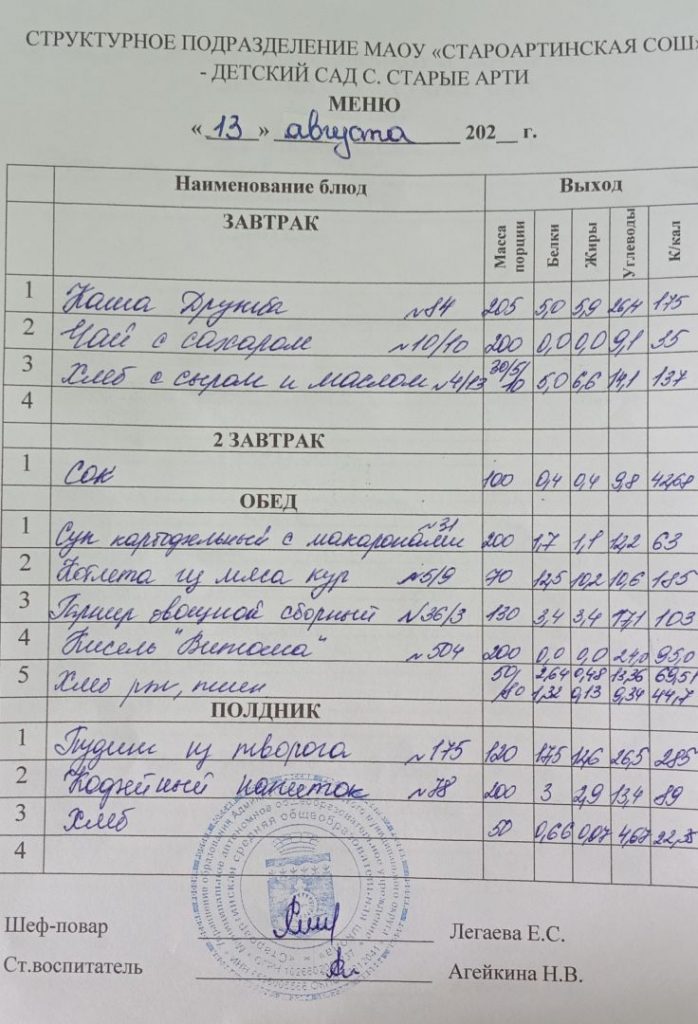 СТРУКТУРНОЕ ПОДРАЗДЕЛЕНИЕ МАОУ «СТАРОАРТИНСКАЯ СОШ»
- ДЕТСКИЙ САД С. СТАРЫЕ АРТИ
МЕНЮ
« 13 » августа 202__ г.
Наименование блюд Выход
ЗАВТРАК Масса порции Белки Жиры Углеводы К/кал
1 Каша Дружба №84 205 5,0 5,9 26,4 175
2 Чай с сахаром №10/10 200 0,0 0,0 9,1 35
3 Хлеб с сыром и маслом №4/13 30/5/10 5,0 6,6 14,1 137
4
2 ЗАВТРАК
1 Сок 100 0,4 0,4 9,8 42,68
ОБЕД
1 Суп картофельный с макаронами №31 200 1,7 1,1 12,2 63
2 Котлета из мяса кур №5/9 70 12,5 10,2 10,6 185
3 Гарнир овощной сборный №36/3 130 3,4 3,4 17,1 103
4 Кисель "Витошка" №504 200 0,0 0,0 24,0 95,0
5 Хлеб рж, пшен 50/ 2,64 0,48 13,36 69,51
1,32 0,13 9,34 44,7
ПОЛДНИК
1 Пудинг из творога №175 120 17,5 12,6 26,5 285
2 Кофейный напиток №78 200 3 2,9 13,4 89
3 Хлеб 50 0,66 0,07 4,67 22,35
4
Шеф-повар Легаева Е.С.
Ст.воспитатель Агейкина Н.В.